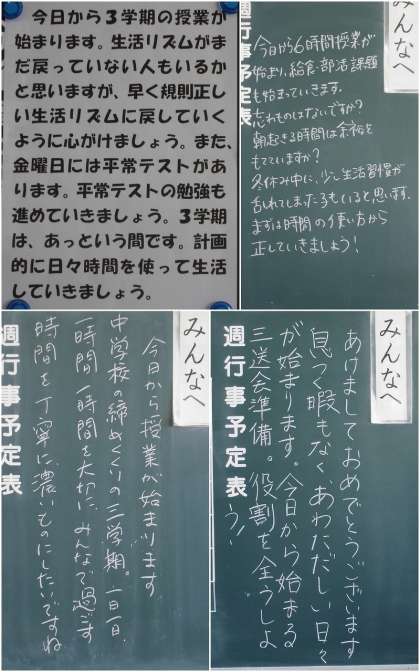 今日から3学期の授業が
始まります。生活リズムがま
だ戻っていない人もいるか
と思いますが、早く規則正し
い生活リズムに戻していく
ように心がけましょう。また、
金曜日には平常テストがあ
ります。平常テストの勉強も
進めていきましょう。3学期
は、あっという間です。計画
的に日々時間を使って生活
していきましょう。
みんなへ
週行事予定表
今日から6時間授業が
始まり、給食・部活・課題
も始まっていきます。
忘れものはないですか?
朝起きる時間は余裕を
もてていますか?
冬休み中に、少し生活習慣が
乱れてしまった子もいると思います。
まずは時間の使い方から
正していきましょう!
みんなへ
今日から授業が始まります。
中学校の締めくくりの三学期。一日一日、
一時間一時間を大切に、みんなで過ごす
時間を丁寧に、濃いものにしたいですね
週行事予定表
みんなへ
あけましておめでとうございます
息つく暇もなく、あわただしい日々
が始まります。今日から始まる
三送会準備。役割を全うしよ
う!
週行事予定表